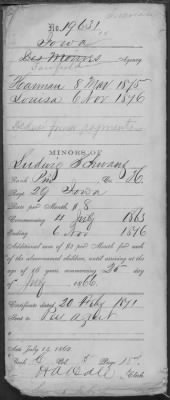 No. 19631
Iowa
Des Moines Agency
Fairfield
Herman 8 Mar 1875
Louisa 6 Nov 1876
MINORS OF
Ludwig Schwanz
Rank Co. H.
Regt. 29 Iowa
Rate per Month $8
Commencing 4 July 1863
Ending 6 Nov 1876
Additional sum of $2 per Month for each
of the abovenamed children, until arriving at the
age of 16 years, commencing 25 day
of July 1866.
Certificate dated 20 1871
Sent to Pen Agent
Act July 14 1862
Clerk